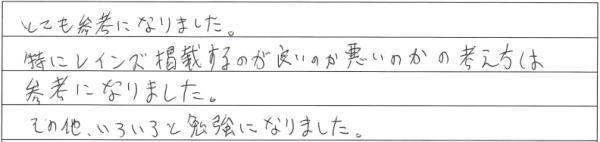 とても参考になりました。
特にレインズ掲載するのが良いのか悪いのかの考え方は
参考になりました。
その他、いろいろと勉強になりました。